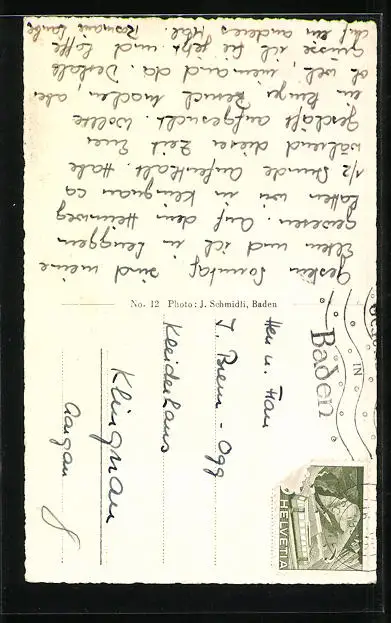 Gestern Sonntag sind meine
Eltern und ich in Lenggern
gewesen. Auf dem Heimweg
hatten wir in Klingnau ca
1/2 Stunde Aufenthalt. Habe
während dieser Zeit Euer
Geschäft aufgesucht. Wollte
ein kurzer Besuch machen, aber
oh weh, niemand da. Deshalb
grüsse ich Sie jetzt und hoffe
auf ein anderes Mal.
No. 12 Photo: J. Schmidli, Baden
Herr u. Frau
J. - Ogg
Kleiderhaus
Klingnau
Aargau
IN
Baden
HELVETIA